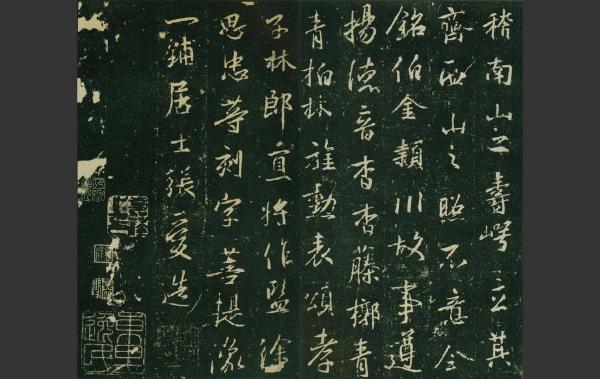 稽南山之壽崿立其
齊西山之照不意
銘伯金類川故事遵
揚德音杳杳藤槨青
青柏林旌勳表頌孝
子林郎直將作監徐
思忠等刻字菩提像
一鋪居士張愛造